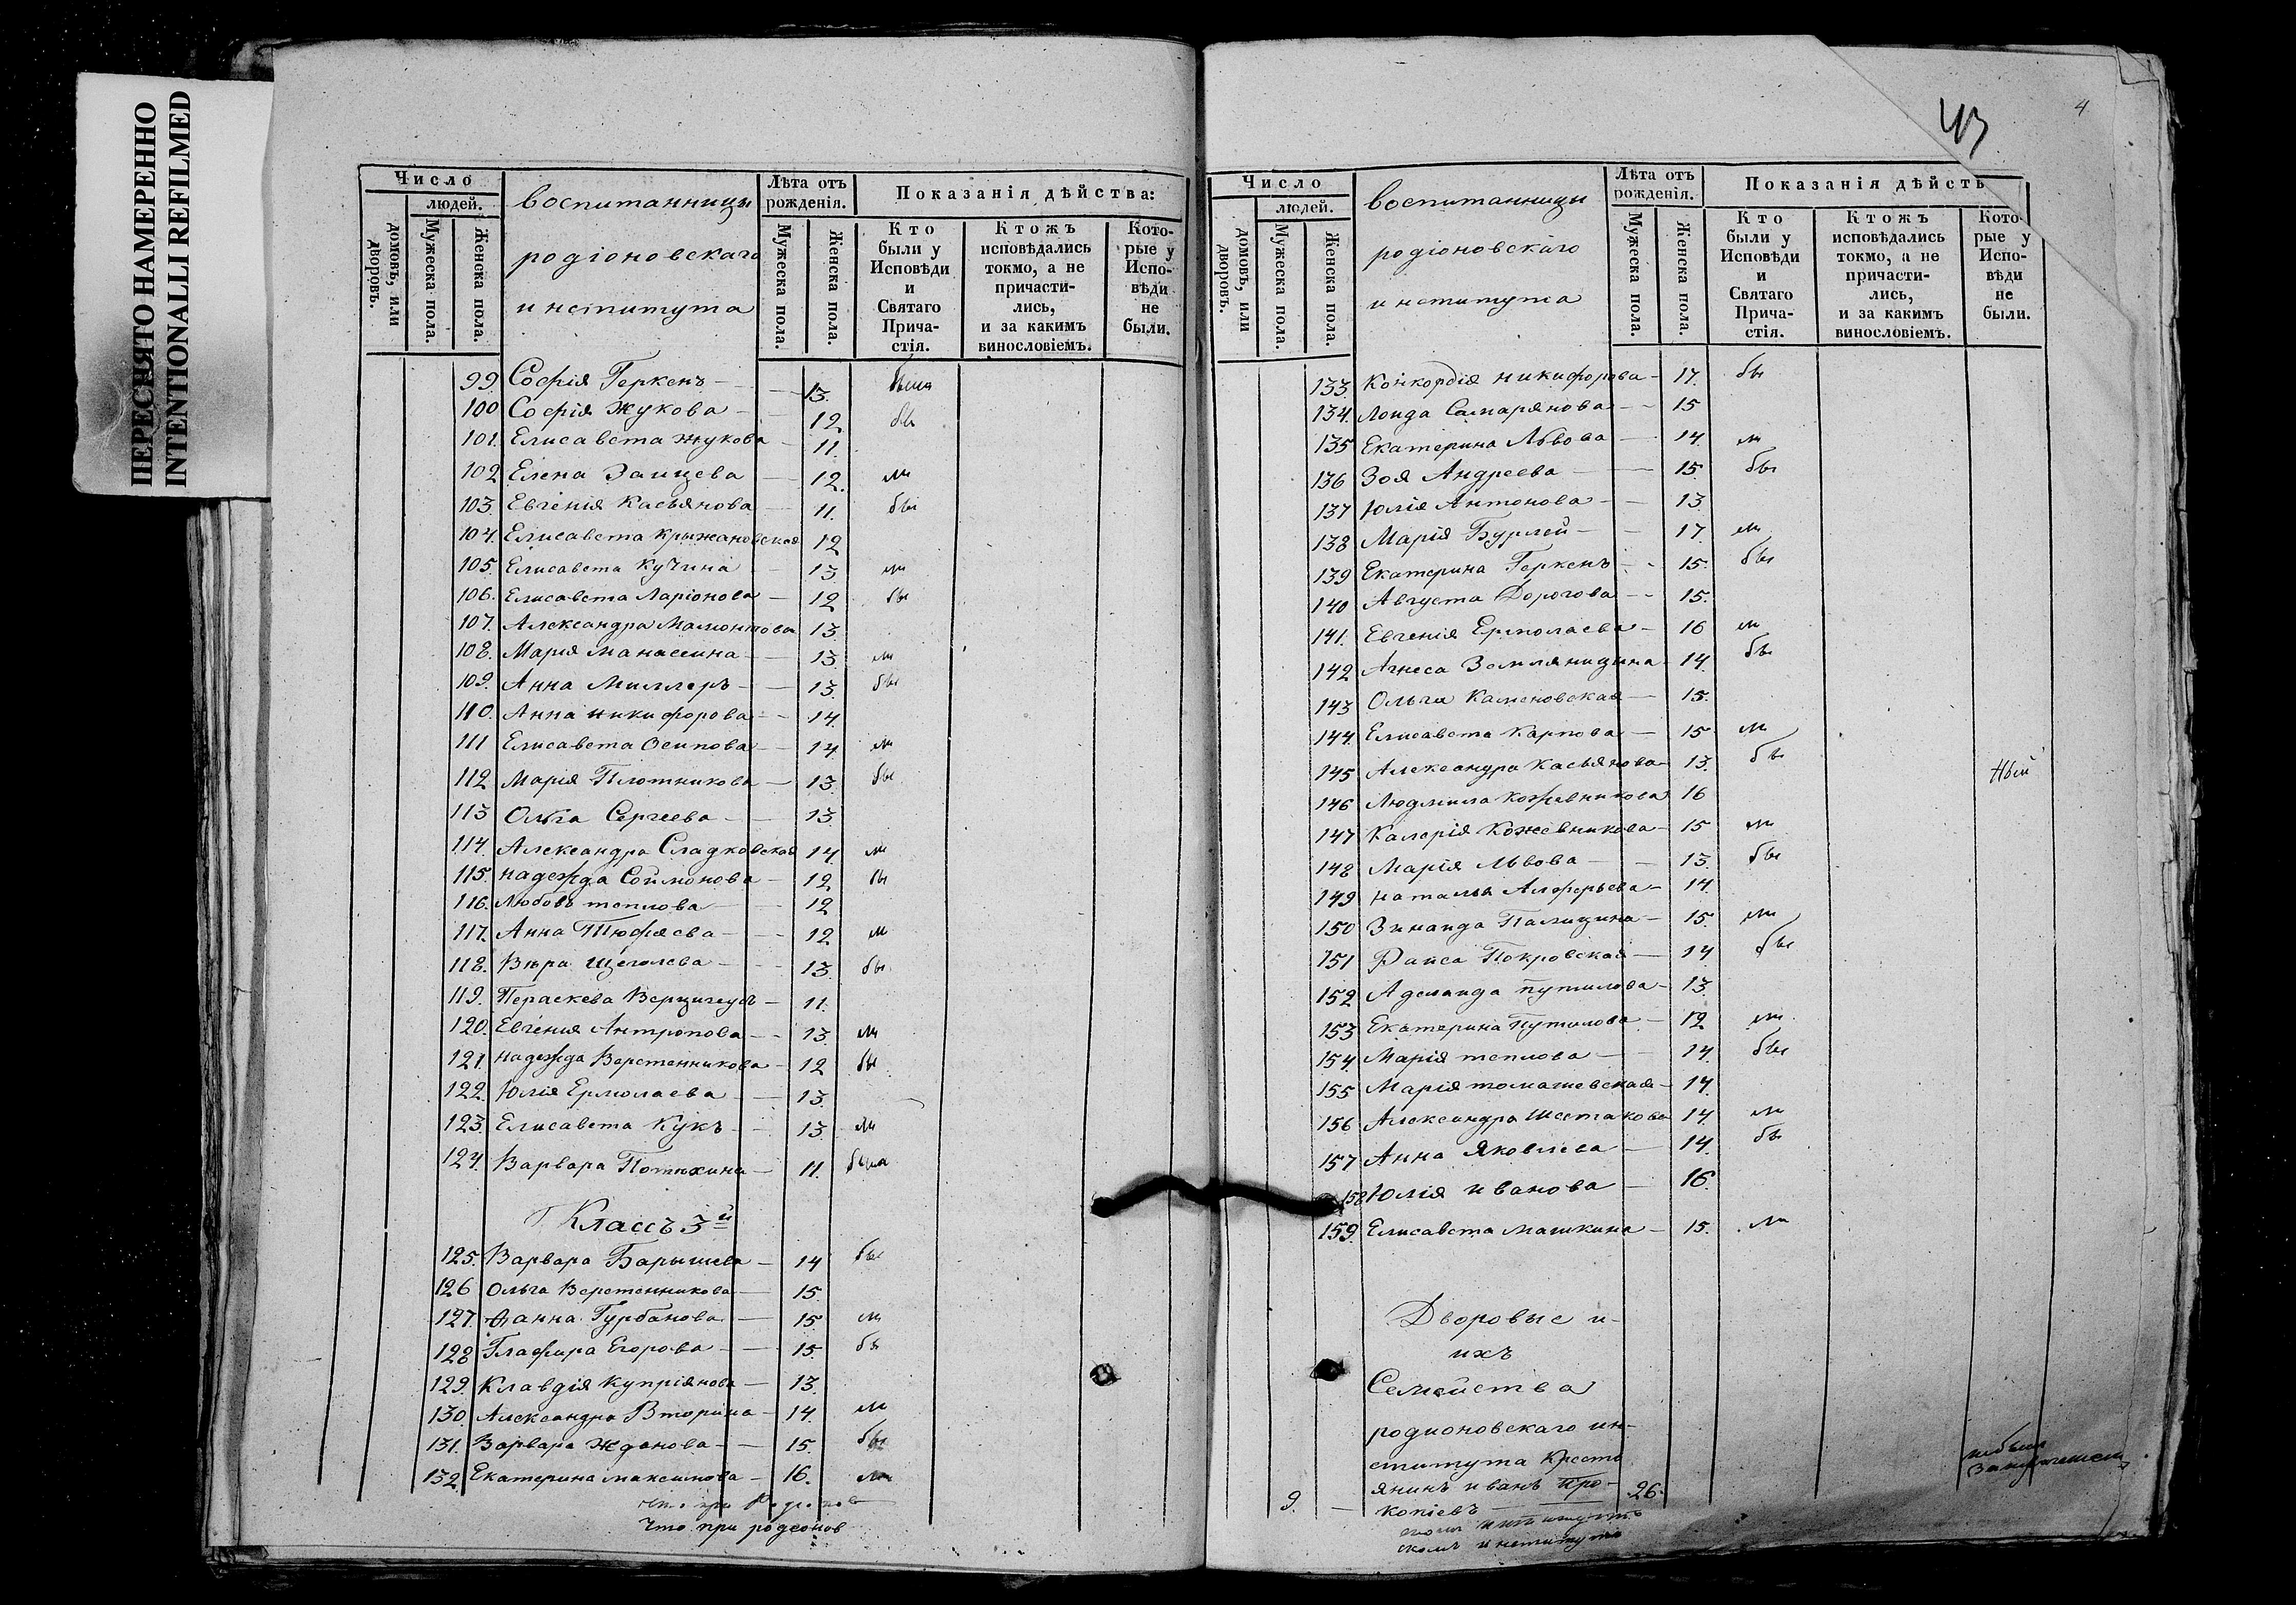 ПЕРЕСНЯТО НАМЕРЕННО
INTENTIONALLI REFILMED
43
4
Число
людей.
домовъ, или дворовъ.
Мужеска пола.
Женска пола.
воспитанницы
родіоновскаго
института
Лѣта отъ рожденія.
Мужеска пола.
Женска пола.
Показанія дѣйства:
Кто были у Исповѣди и Святаго Прича-стія.
Ктожъ исповѣдались токмо, а не причасти-лись, и за какимъ винословіемъ.
Кото-рые у Испо-вѣди не были.
99 Софія Геркенъ 13. была
100 Софія Жукова 12. бы
101. Елисавета Жукова 11.
102 Елена Заицева 12. ли
103. Евгенія Касьянова 11. бы
104. Елисавета Крыжановская 12
105. Елисавета Кучина 13 ли
106. Елисавета Ларіонова 12 бы
107. Александра Мамонтова 13.
108. Марія Манасеина 13. ли
109. Анна Миллеръ 13. бы
110. Анна никифорова 14.
111 Елисавета Осипова 14. ли
112 Марія Плотникова 13. бы
113 Ольга Сергеева 13.
114. Александра Сладковская 14. ли
115. надежда Соймонова 12 бы
116. Любовь теплова 12
117. Анна Тюфяева 12 ли
118. Вѣра Щеголева 13. бы
119. Параскева 11.
120. Евгенія Антропова 13. ли
121. надежда Веретенникова 12 бы
122. Юлія Ермолаева 13.
123. Елисавета Кукъ 13. ли
124. Варвара Потехина 11. была
Классъ 3й
125. Варвара Барышева 14 бы
126 Ольга Веретенникова 15.
127. анна Гурбанова 15 ли
128 Глафира Егорова 15. бы
129. Клавдія Купріянова 13.
130. Александра Вторина 14. ли
131. Варвара Жданова 15. бы
132 Екатерина максимова 16. ли
Что при родеонов
Число
людей.
домовъ, или дворовъ.
Мужеска пола.
Женска пола.
воспитанницы
родіоновскаго
института
Лѣта отъ рожденія.
Мужеска пола.
Женска пола.
Показанія дѣйств
Кто были у Исповѣди и Святаго Прича-стія.
Ктожъ исповѣдались токмо, а не причасти-лись, и за какимъ винословіемъ.
Кото-рые у Испо-вѣди не были.
133. Конкордія никифорова 17. бы
134. Лоида Самарянова 15
135 Екатерина Львова 14. ли
136 Зоя Андреева 15. бы
137 Юлія Антонова 13
138 Марія Бурлей 17. ли
139 Екатерина Геркенъ 15. бы
140 Августа Дорогова 15.
141. Евгенія Ермолаева 16 ли
142 Агнеса Земляницина 14. бы
143 Ольга Каменовская 15.
144. Елисавета Карпова 15 ли
145 Александра Касьянова 13. бы
ный
146 Людмила Кожевникова 16
147 Калерія Кожевникова 15 ли
148 Марія Львова 13. бы
149 наталья Алферьева 14.
150 Зинаида Палицина 15. ли
151 Раиса Покровская 14 бы
152 Аделаида путилова 13.
153 Екатерина Путилова 12 ли
154. Марія теплова 14. бы
155 Марія томашевская 14.
156 Александра Шестакова 14. ли
157 Анна Яковлева 14. бы
158 Юлія иванова 16.
159. Елисавета машкина 15. ли
Дворовые и
ихъ
Семейства
родионовскаго ин-
ститута Кресть
янинъ иванъ Про-
9. копіевъ 26. небылъ
скомъ институте